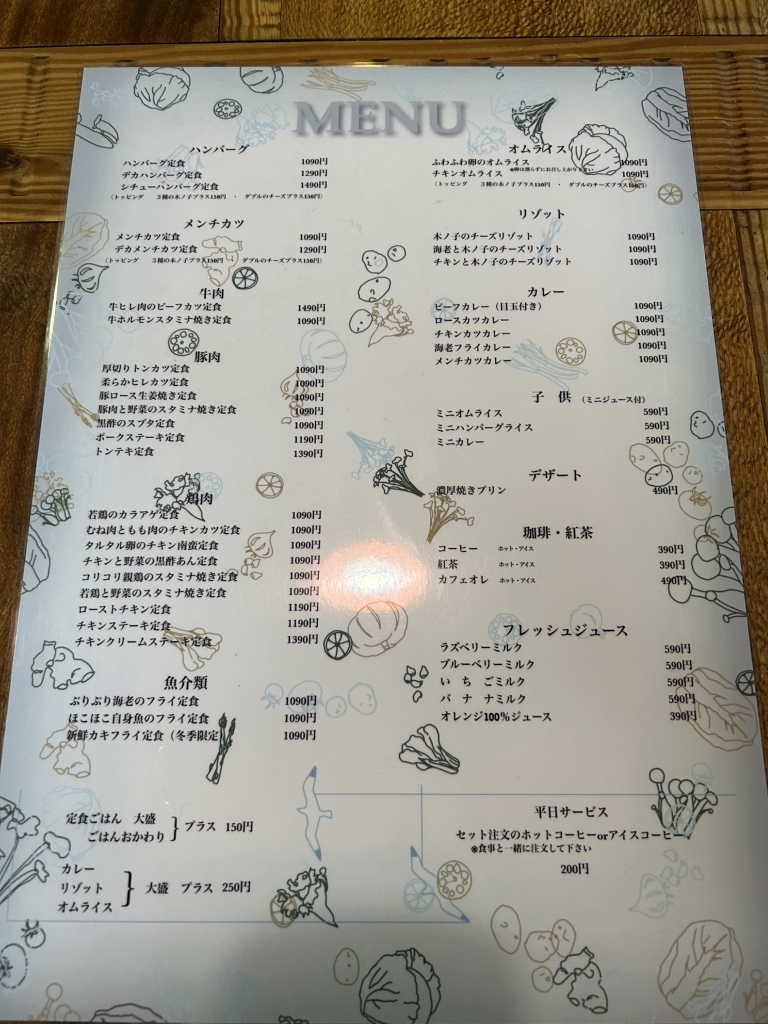 MENU
ハンバーグ
ハンバーグ定食 1090円
デカハンバーグ定食 1290円
シチューハンバーグ定食 1490円
(トッピング 3種の木ノ子プラス150円 ・ ダブルのチーズプラス150円)
メンチカツ
メンチカツ定食 1090円
デカメンチカツ定食 1290円
(トッピング 3種の木ノ子プラス150円 ダブルのチーズプラス150円)
牛肉
牛ヒレ肉のビーフカツ定食 1490円
牛ホルモンスタミナ焼き定食 1090円
豚肉
厚切りトンカツ定食 1090円
柔らかヒレカツ定食 1090円
豚ロース生姜焼き定食 1090円
豚肉と野菜のスタミナ焼き定食 1090円
黒酢のスブタ定食 1090円
ポークステーキ定食 1190円
トンテキ定食 1390円
鶏肉
若鶏のカラアゲ定食 1090円
むね肉ともも肉のチキンカツ定食 1090円
タルタル卵のチキン南蛮定食 1090円
チキンと野菜の黒酢あん定食 1090円
コリコリ親鶏のスタミナ焼き定食 1090円
若鶏と野菜のスタミナ焼き定食 1090円
ローストチキン定食 1190円
チキンステーキ定食 1190円
チキンクリームステーキ定食 1390円
魚介類
ぷりぷり海老のフライ定食 1090円
ほこほこ白身魚のフライ定食 1090円
新鮮カキフライ定食(冬季限定) 1090円
定食ごはん 大盛
ごはんおかわり } プラス 150円
カレー
リゾット } 大盛 プラス 250円
オムライス
オムライス
ふわふわ卵のオムライス 1090円
※卵は落らずにお召し上がり下さい
チキンオムライス 1090円
(トッピング 3種の木ノ子プラス150円 ・ ダブルのチーズプラス150円)
リゾット
木ノ子のチーズリゾット 1090円
海老と木ノ子のチーズリゾット 1090円
チキンと木ノ子のチーズリゾット 1090円
カレー
ビーフカレー(目玉付き) 1090円
ロースカツカレー 1090円
チキンカツカレー 1090円
海老フライカレー 1090円
メンチカツカレー 1090円
子 供 (ミニジュース付)
ミニオムライス 590円
ミニハンバーグライス 590円
ミニカレー 590円
デザート
濃厚焼きプリン 490円
珈琲・紅茶
コーヒー ホット・アイス 390円
紅茶 ホット・アイス 390円
カフェオレ ホット・アイス 490円
フレッシュジュース
ラズベリーミルク 590円
ブルーベリーミルク 590円
い ち ごミルク 590円
バ ナ ナミルク 590円
オレンジ100%ジュース 390円
平日サービス
セット注文のホットコーヒーorアイスコーヒー
※食事と一緒に注文して下さい
200円